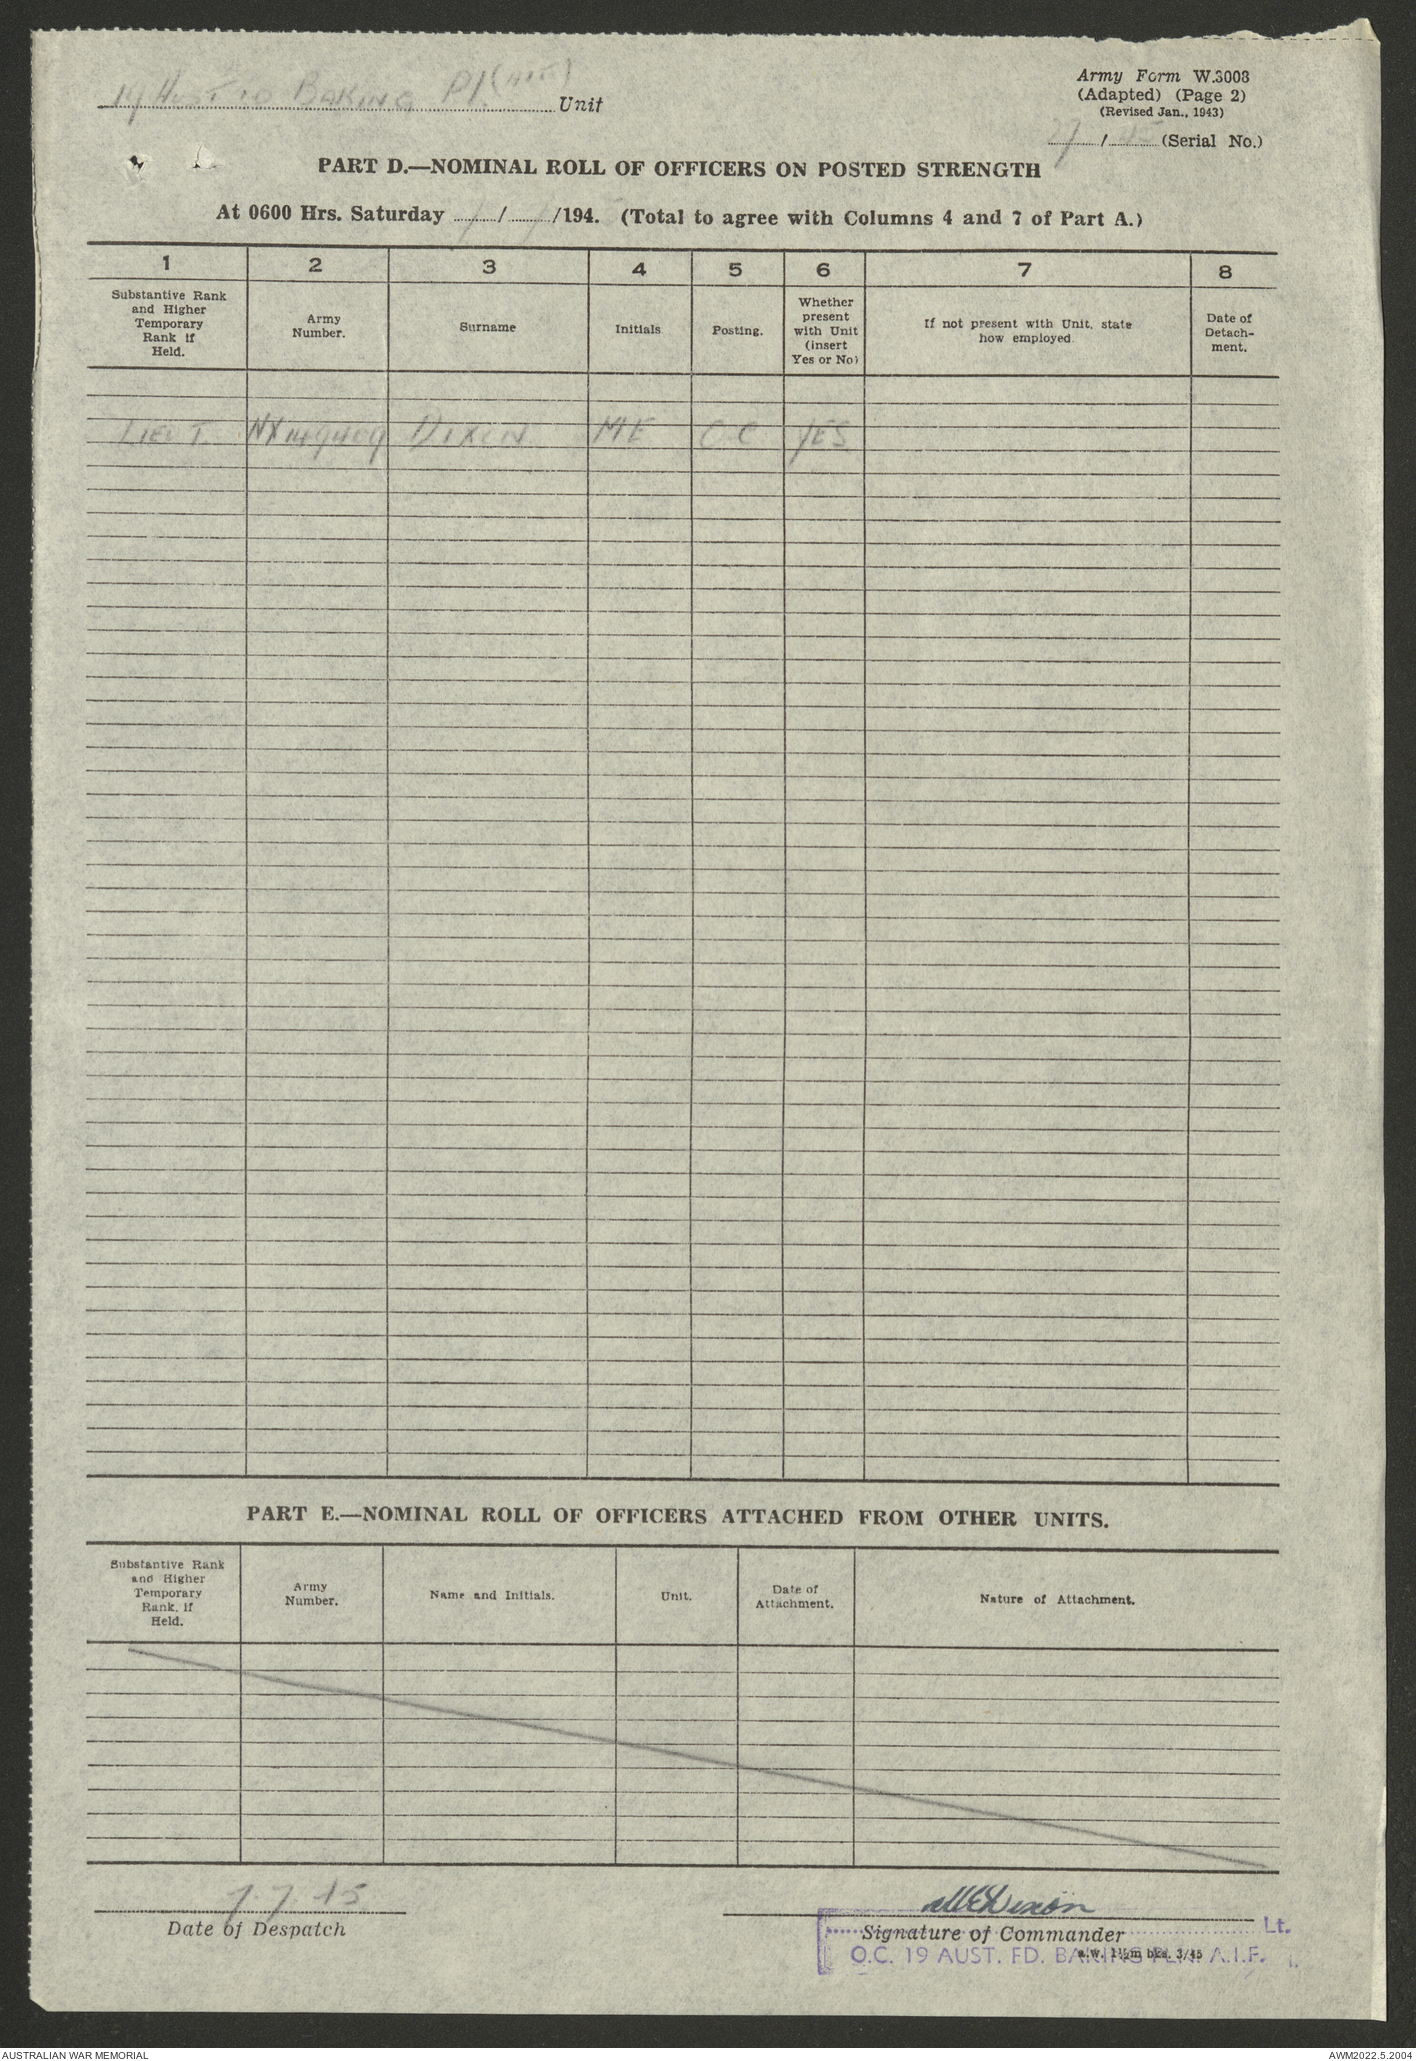 19 AUST FD BAKING Pl. (AIF) Unit
Army Form W.3008
(Adapted) (Page 2)
(Revised Jan., 1943)
27/45 (Serial No.)
PART D.—NOMINAL ROLL OF OFFICERS ON POSTED STRENGTH
At 0600 Hrs. Saturday / /194. (Total to agree with Columns 4 and 7 of Part A.)
1 2 3 4 5 6 7 8
Substantive Rank
and Higher
Temporary
Rank if
Held.
Army
Number.
Surname
Initials
Posting.
Whether
present
with Unit
(insert
Yes or No)
If not present with Unit, state
how employed.
Date of
Detach-
ment.
LIEUT. NX149409 DIXON ME YES
PART E.—NOMINAL ROLL OF OFFICERS ATTACHED FROM OTHER UNITS.
Substantive Rank
and Higher
Temporary
Rank, if
Held.
Army
Number.
Name and Initials.
Unit.
Date of
Attachment.
Nature of Attachment.
7.7.45
Date of Despatch
MEDixon
Signature of Commander Lt.
O.C. 19 AUST. FD. BAKING PLN. A.I.F.
a.w. 1½m bks. 3/45
AUSTRALIAN WAR MEMORIAL
AWM2022.5.2004